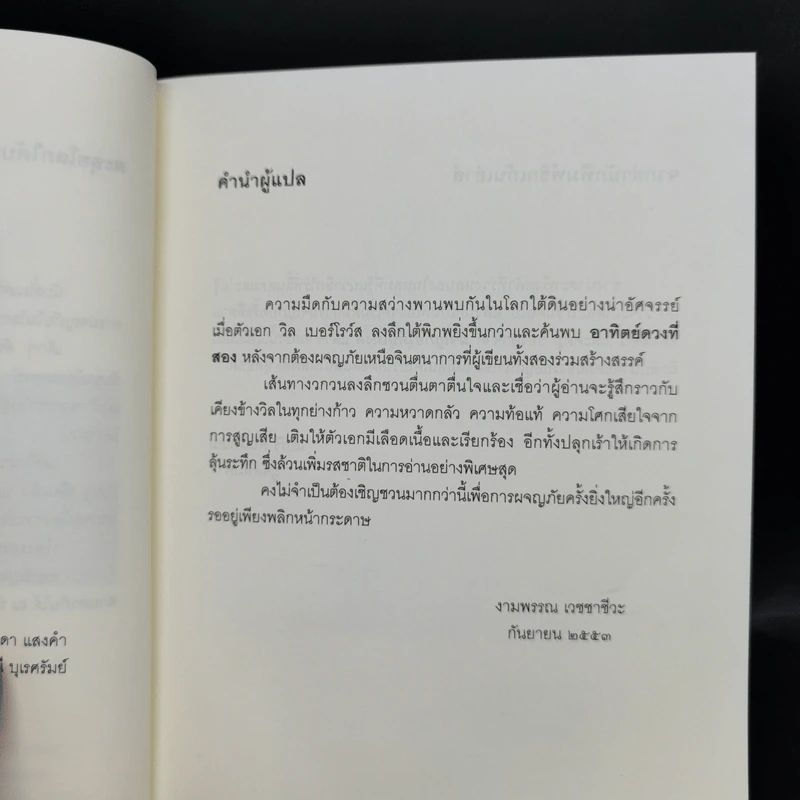 คำนำผู้แปล
ความมืดกับความสว่างพานพบกันในโลกใต้ดินอย่างน่าอัศจรรย์
เมื่อตัวเอก วิล เบอร์โรว์ส ลงลึกใต้พิภพยิ่งขึ้นกว่าและค้นพบ อาทิตย์ดวงที่
สอง หลังจากต้องผจญภัยเหนือจินตนาการที่ผู้เขียนทั้งสองร่วมสร้างสรรค์
เส้นทางวกวนลงลึกชวนตื่นตาตื่นใจและเชื่อว่าผู้อ่านจะรู้สึกราวกับ
เคียงข้างวิลในทุกย่างก้าว ความหวาดกลัว ความท้อแท้ ความโศกเสียใจจาก
การสูญเสีย เติมให้ตัวเอกมีเลือดเนื้อและเรียกร้อง อีกทั้งปลุกเร้าให้เกิดการ
ลุ้นระทึก ซึ่งล้วนเพิ่มรสชาติในการอ่านอย่างพิเศษสุด
คงไม่จำเป็นต้องเชิญชวนมากกว่านี้เพื่อการผจญภัยครั้งยิ่งใหญ่อีกครั้ง
รออยู่เพียงพลิกหน้ากระดาษ
งามพรรณ เวชชาชีวะ
กันยายน ๒๕๕๓
ดา แสงคำ
บุเรศรัมย์